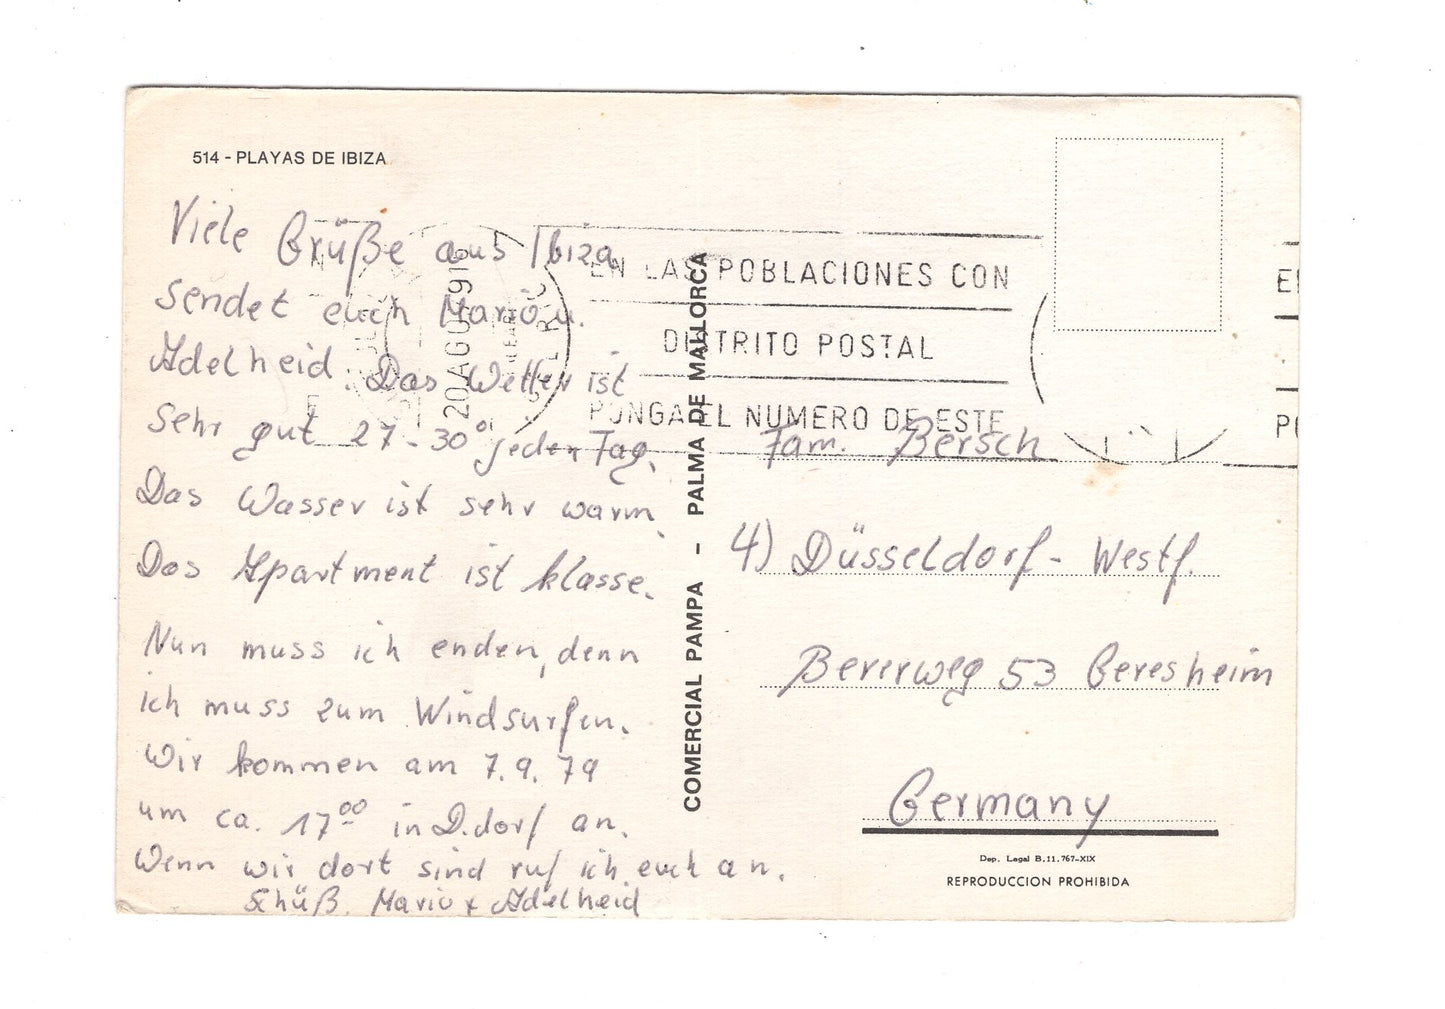 514 - PLAYAS DE IBIZA
Viele Grüße aus Ibiza
sendet euch Mario u.
Adelheid. Das Wetter ist
sehr gut 27-30° jeden Tag.
Das Wasser ist sehr warm.
Das Apartment ist klasse.
Nun muss ich enden, denn
ich muss zum Windsurfen.
Wir kommen am 7.9.79
um ca. 17⁰⁰ in D.dorf an.
Wenn wir dort sind ruf ich euch an.
Schüß. Mario + Adelheid
COMERCIAL PAMPA - PALMA DE MALLORCA
EN LAS POBLACIONES CON
DISTRITO POSTAL
PONGA EL NUMERO DE ESTE
20 AGO
Fam. Bersch
4) Düsseldorf - Westf.
53 Geresheim
Germany
Dep. Legal B.11.767-XIX
REPRODUCCION PROHIBIDA